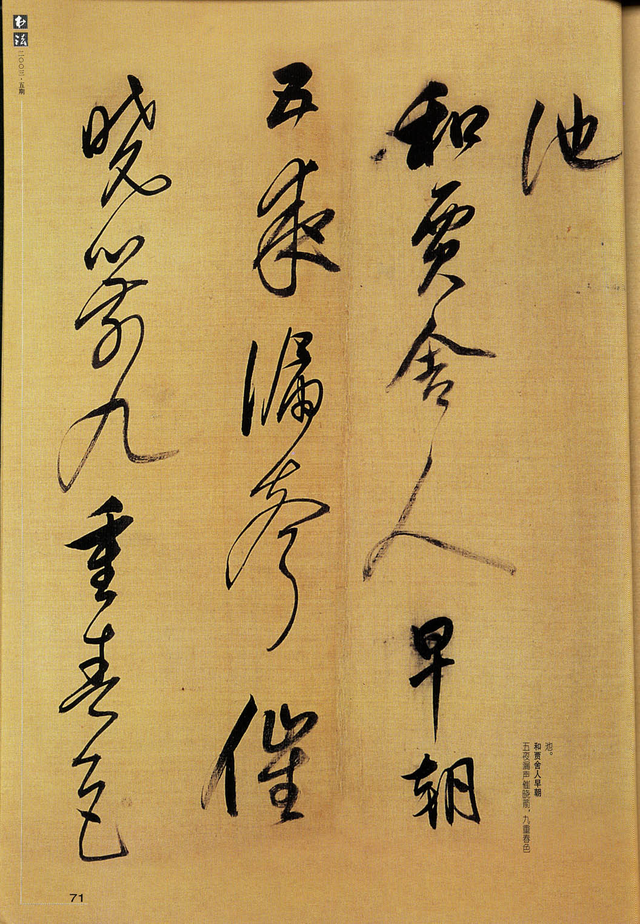 池
和贾舍人早朝
五夜漏声催
晓箭九重春色
池。
和贾舍人早朝
五夜漏声催晓箭，九重春色
书法
二〇〇三·五期
71